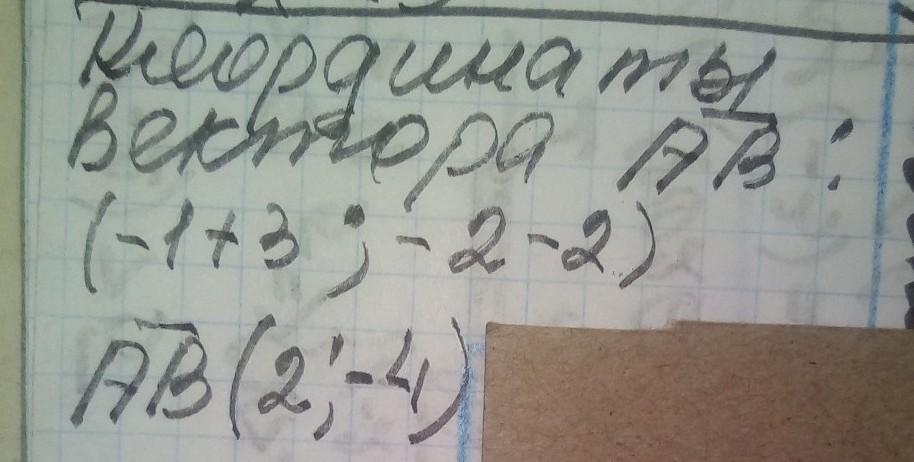 Координаты
вектора AB:
(-1+3; -2-2)
AB(2; -4)